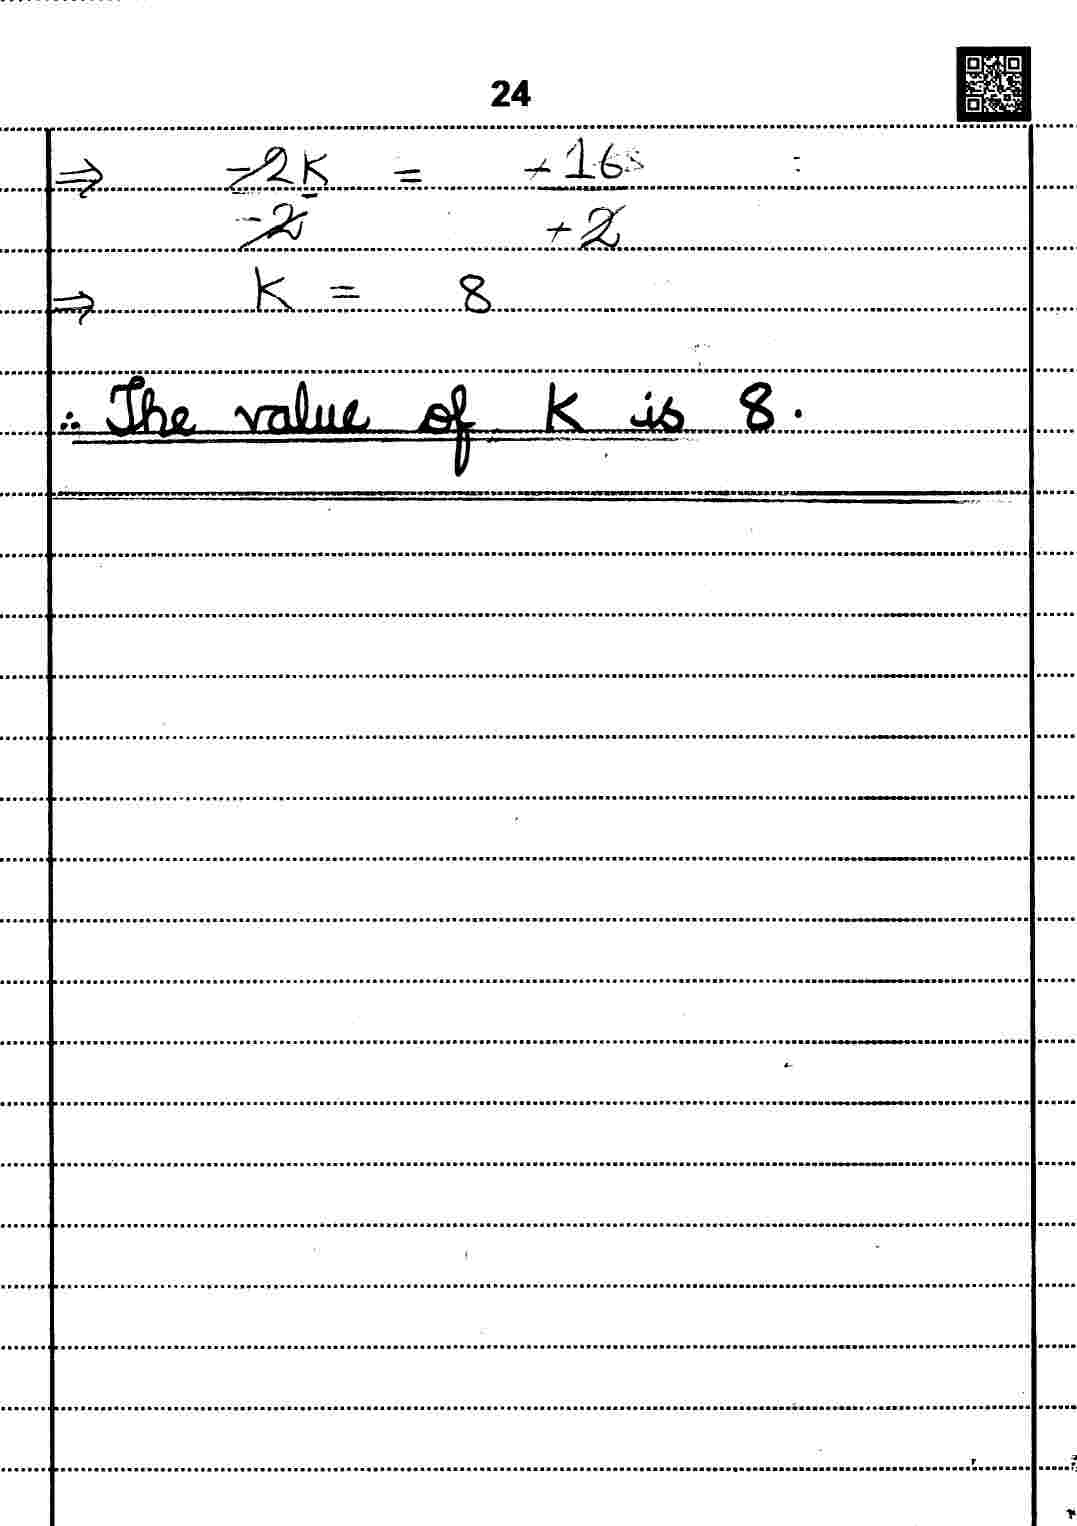 24
⇒ -2K = +16
-2 +2
⇒ K = 8
∴ The value of K is 8.